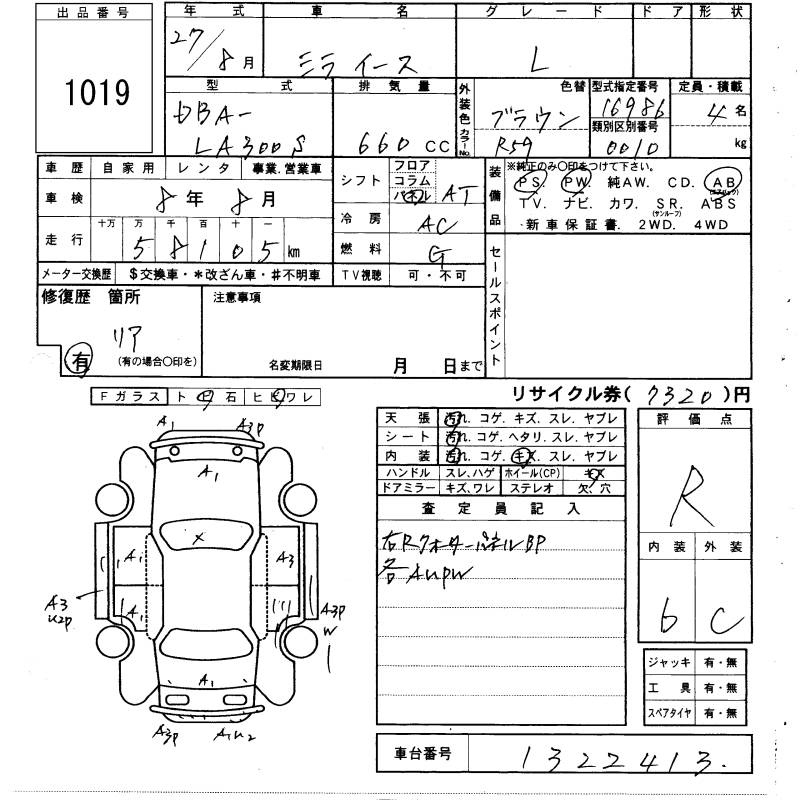 出品番号 年式 車名 グレード ドア 形状
1019 27/8月 ミライース L
型式 排気量 外装色 カラーNo. 色替 型式指定番号 定員・積載
DBA-LA300S 660 CC ブラウン R59 16986 4名
類別区別番号 0010 kg
車歴 自家用 レンタ 事業.営業車
車検 8年 8月
走行 十万 万 千 百 十 一
58105 km
メーター交換歴 $交換車・*改ざん車・#不明車
シフト フロア コラム パネル AT
冷房 AC
燃料 G
TV視聴 可・不可
装備品 ※純正のみ〇印をつけて下さい。
PS. PW. 純AW. CD. AB(エアバック)
TV. ナビ. カワ. SR.(サンルーフ) ABS
新車保証書. 2WD. 4WD
修復歴 箇所 注意事項 セールスポイント
リア
有 (有の場合〇印を) 名変期限日 月 日まで
Fガラス トビ石 ヒビワレ
リサイクル券( 7320 )円
天張 汚れ. コゲ. キズ. スレ. ヤブレ
シート 汚れ. コゲ. ヘタリ. スレ. ヤブレ
内装 汚れ. コゲ. キズ. スレ. ヤブレ
ハンドル スレ、ハゲ ホイール(CP) キズ
ドアミラー キズ、ワレ ステレオ 欠. 穴
評価点
R
内装 外装
b C
査定員記入
右Rクォーターパネル BP
各AUPW
A1 A3P
A1
X
A1 A3
A1
A3 U2P
A3P W
A1
A3P A1U2
ジャッキ 有・無
工具 有・無
スペアタイヤ 有・無
車台番号 1322413.